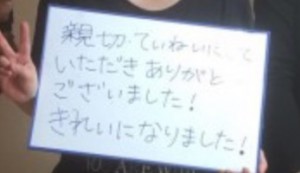 親切・ていねいにして
いただきありがと
ございました!
きれいになりました!